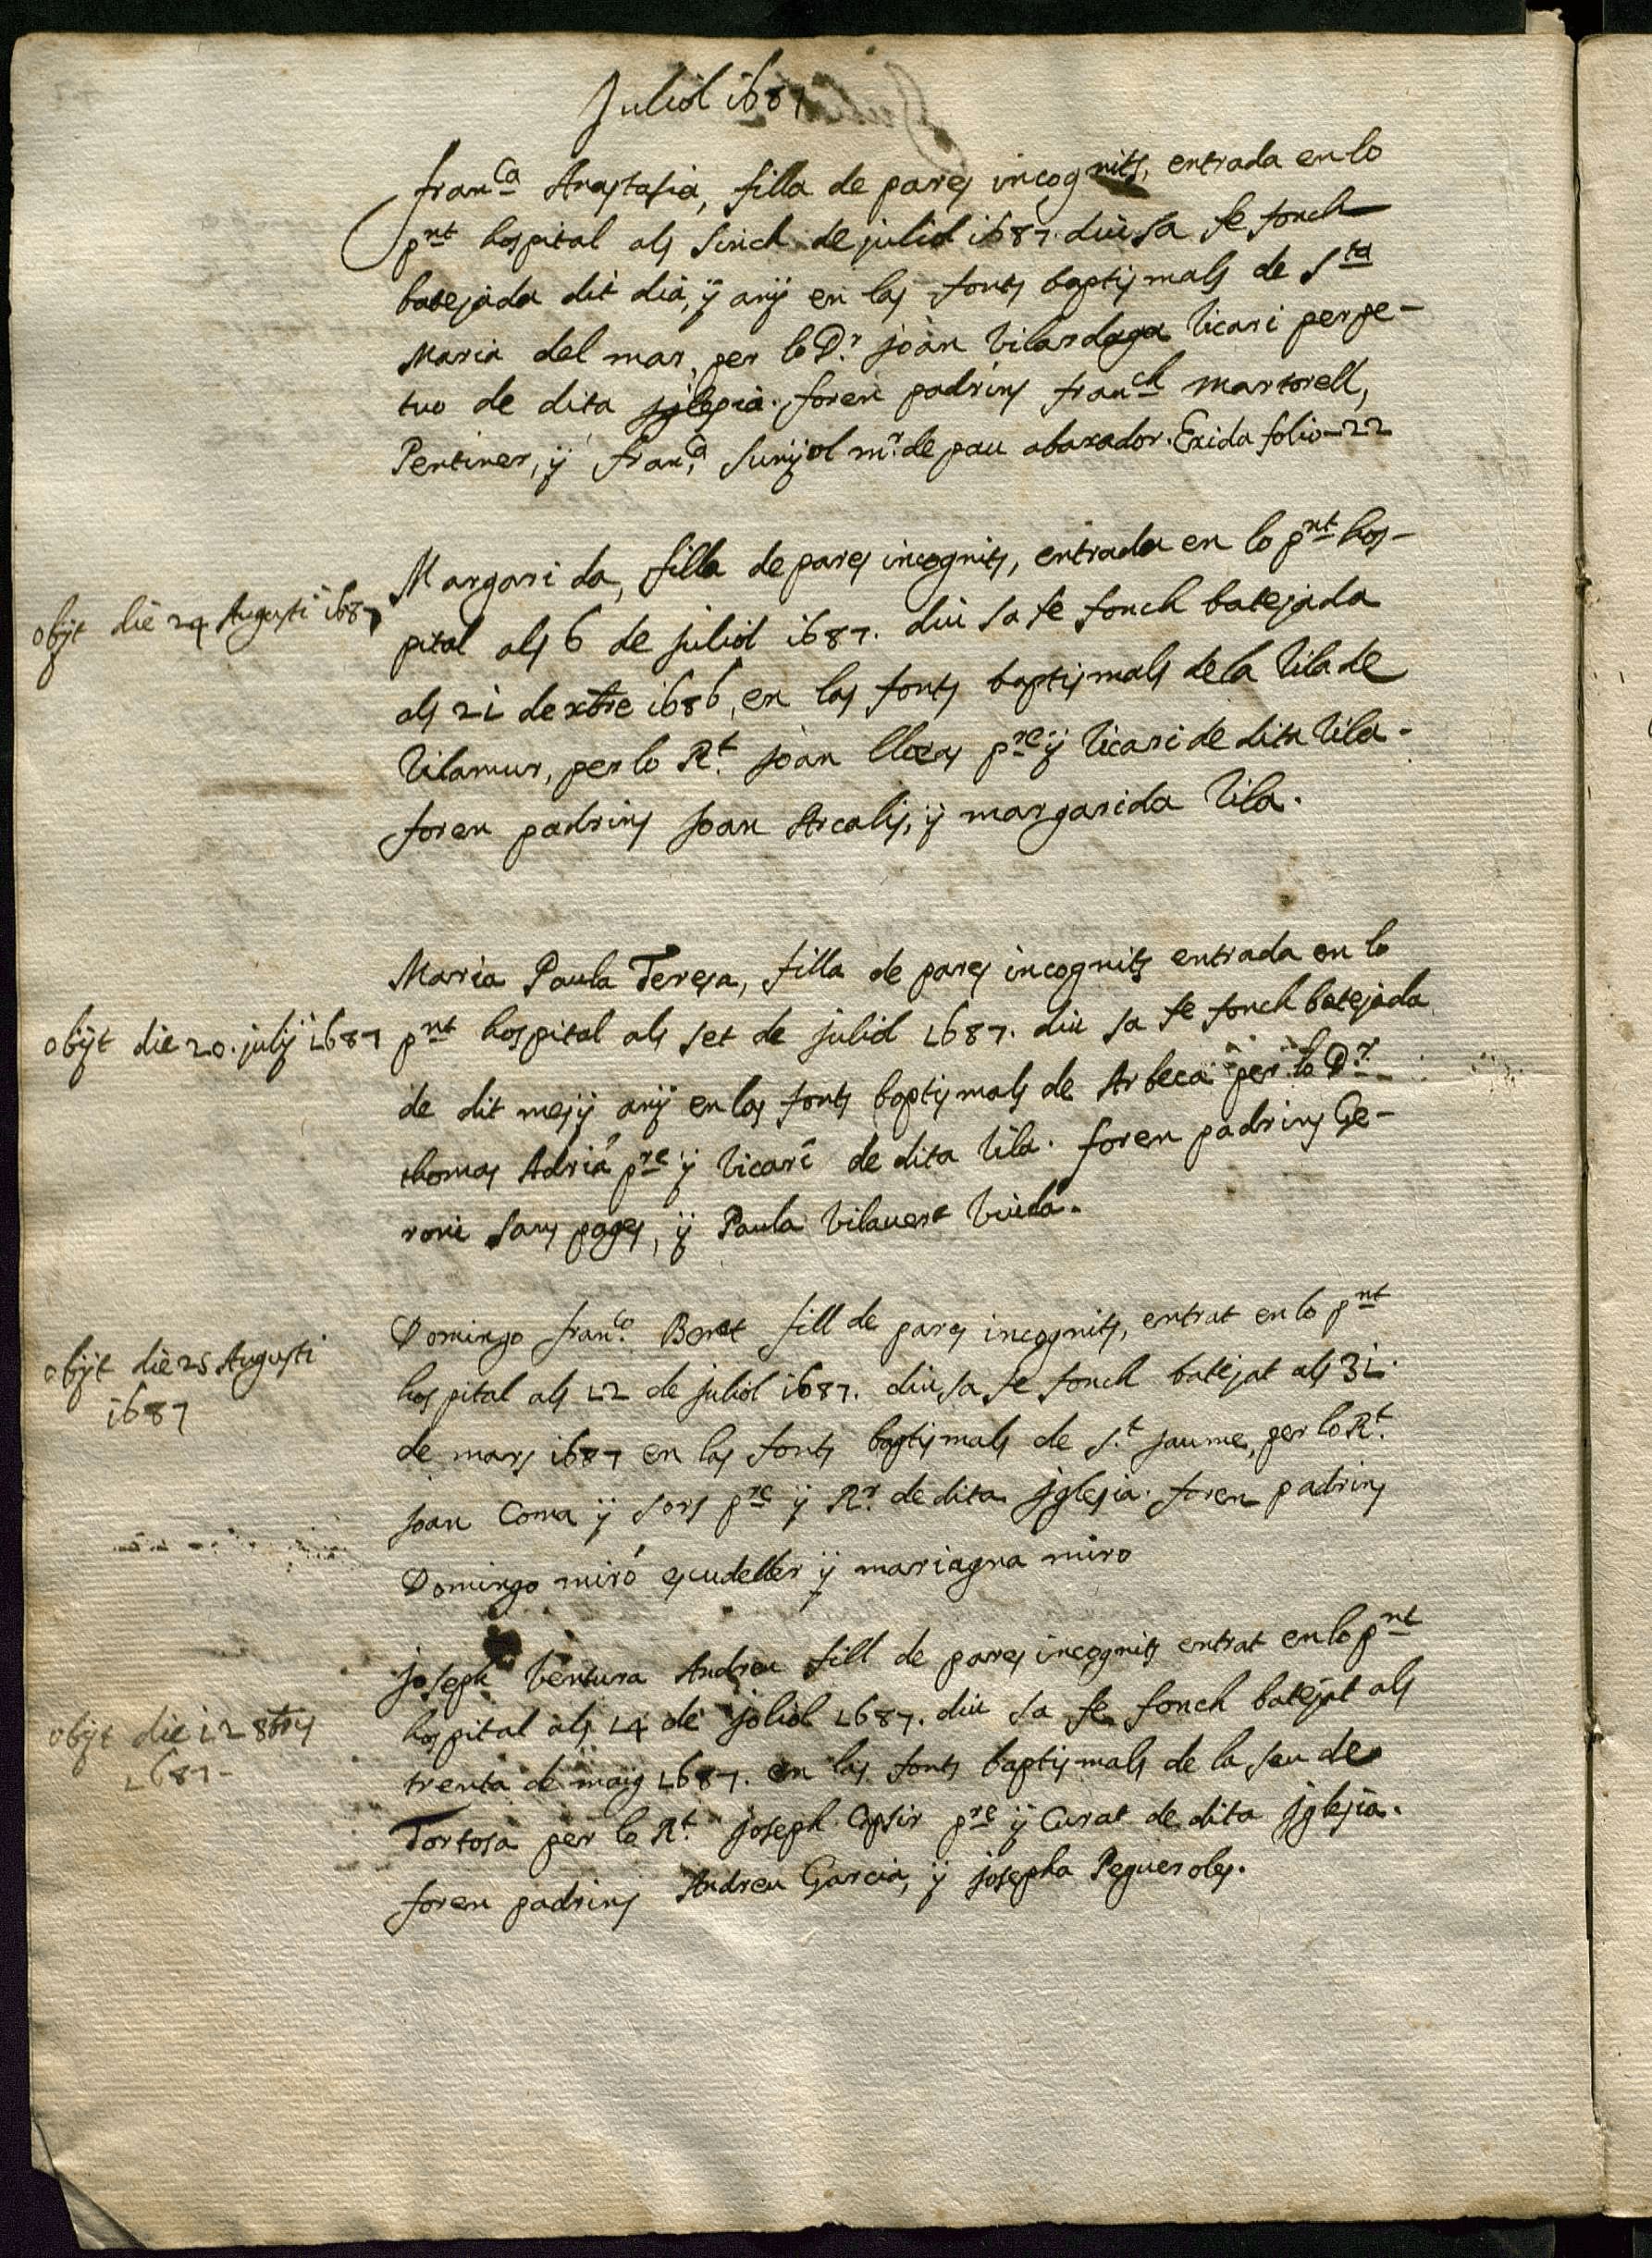 Juliol 1687
fran.ca Anastasia, filla de pares incognits, entrada en lo
pnt hospital als sinch de juliol 1687. diu sa fe fonch
batejada dit dia, ÿ anÿ en las fonts baptismals de Sta
Maria del mar, per lo Dr. joan Vilardaga Vicari perpe-
tuo de dita jglesia. foren padrins franch Martorell,
Pentiner, ÿ franca. Sunÿol mr. de pau abaxador. Exida folio - 22
obÿt die 24 Augusti 1687
Margarida, filla de pares incognits, entrada en lo pnt hos-
pital als 6 de juliol 1687. diu sa fe fonch batejada
als 21 de xbre 1686, en las fonts baptismals de la Vila de
Vilamur, per lo Rt. joan pre ÿ Vicari de dita Vila.
foren padrins joan Arcalis, ÿ margarida Vila.
Maria Paula Teresa, filla de pares incognits entrada en lo
obÿt die 20. julÿ 1687
pnt hospital als set de juliol 1687. diu sa fe fonch batejada
de dit mes ÿ anÿ en las fonts baptismals de Arbeca per lo Dr.
thomas Adria pre ÿ Vicari de dita Vila. foren padrins Ge-
roni Sans pages, ÿ Paula Vilavert Viuda.
Domingo franco. Benet fill de pares incognits, entrat en lo pnt
obÿt die 25 Augusti
1687
hospital als 12 de juliol 1687. diu sa fe fonch batejat als 31.
de mars 1687 en las fonts baptismals de St. jaume, per lo Rt.
joan Coma ÿ Sors pre ÿ Rr. de dita jglesia. foren padrins
Domingo miró escudeller ÿ mariagna miro
joseph Ventura Andreu fill de pares incognits entrat en lo pnt
obÿt die 12 8bris
1687-
hospital als 14 de joliol 1687. diu sa fe fonch batejat als
trenta de maig 1687. en las fonts baptismals de la seu de
Tortosa per lo Rt. joseph Capsir pre ÿ Curat de dita jglesia.
foren padrins Andreu Garcia, ÿ josepha Pegueroles.